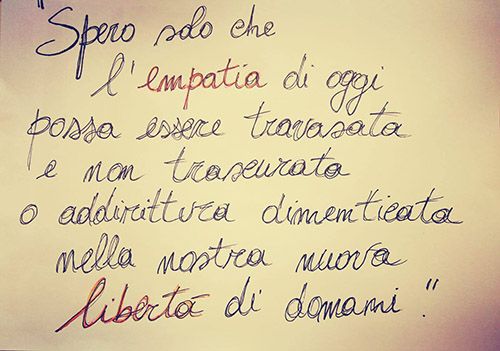 "Spero solo che
l'empatia di oggi
possa essere travasata
e non trascurata
o addirittura dimenticata
nella nostra nuova
libertà di domani."